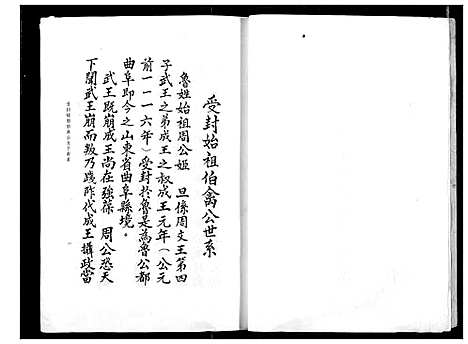 受封始祖伯禽公世系
魯姓始祖周公姬　旦係周文王第四
子武王之弟成王之叔成王元年（公元
前一一一六年）受封於魯是為魯公都
曲阜即今之山東省曲阜縣境。
武王既崩成王尚在強葆　周公恐天
下聞武王崩而叛乃踐阼代成王攝政當